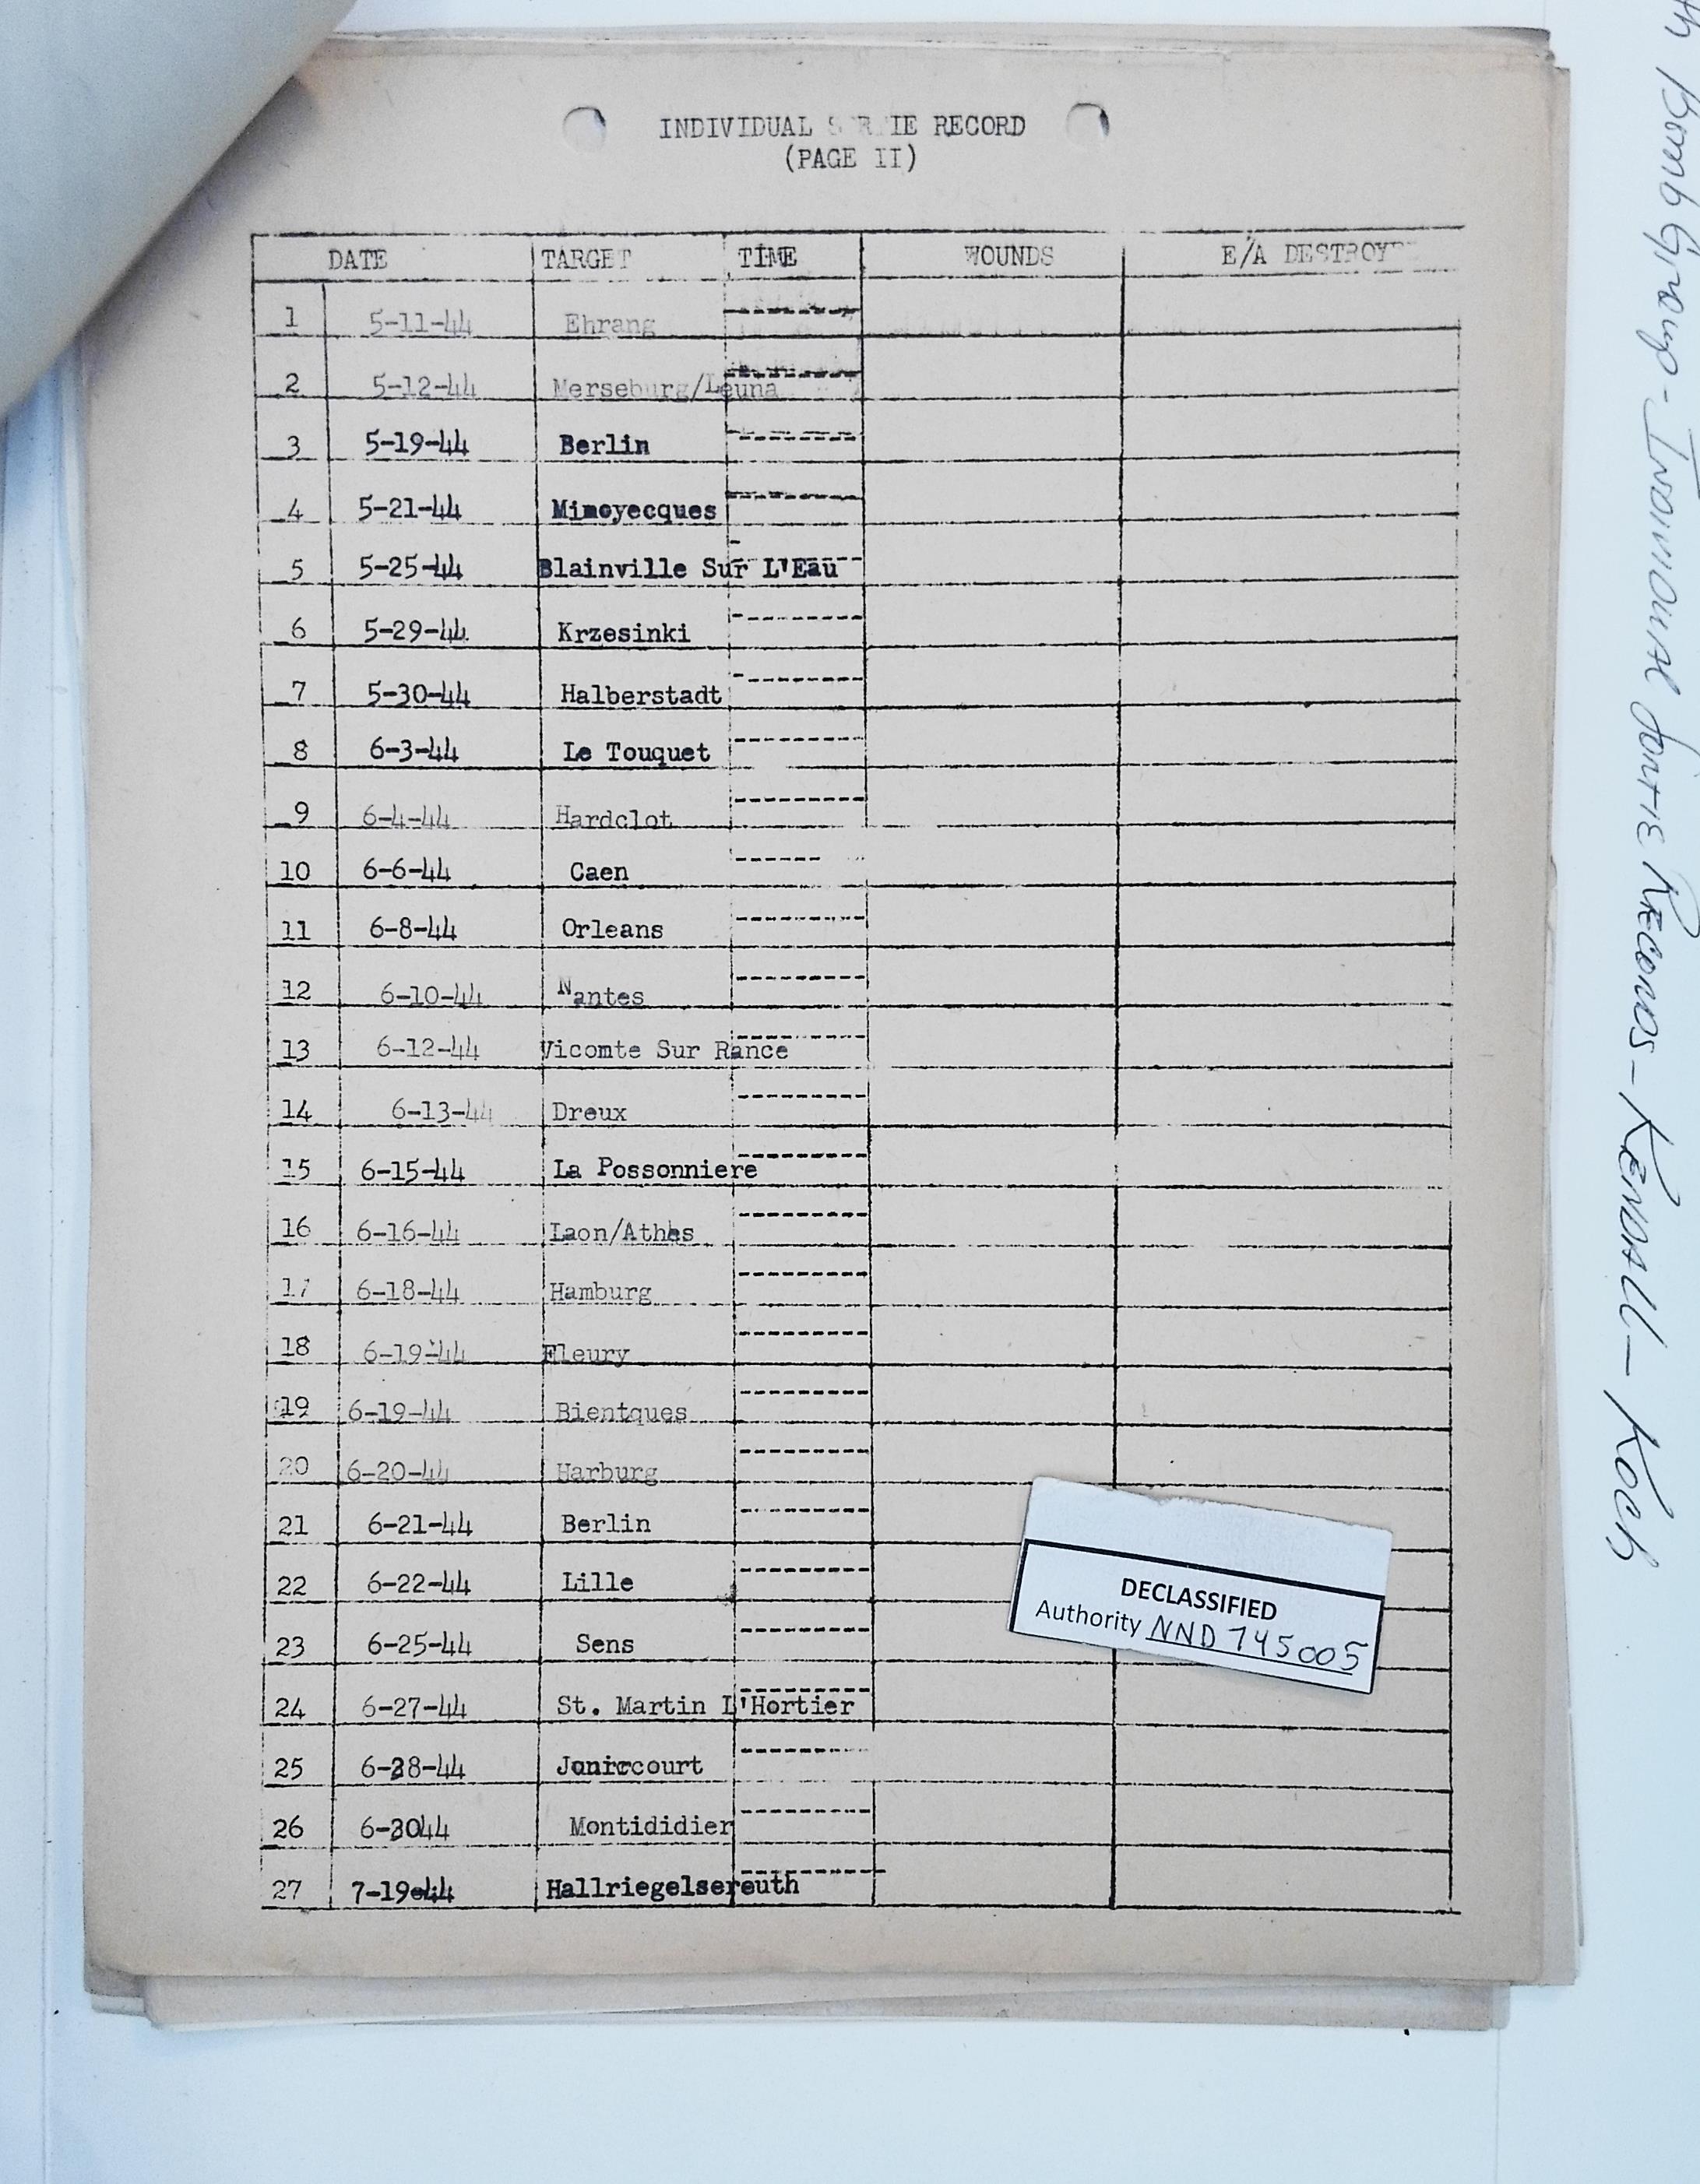 INDIVIDUAL S R IE RECORD
(PAGE II)
DATE TARGET TIME WOUNDS E/A DESTROY
1 5-11-44 Ehrang
2 5-12-44 Merseburg/Leuna
3 5-19-44 Berlin
4 5-21-44 Mimoyecques
5 5-25-44 Blainville Sur L'Eau
6 5-29-44 Krzesinki
7 5-30-44 Halberstadt
8 6-3-44 Le Touquet
9 6-4-44 Hardclot
10 6-6-44 Caen
11 6-8-44 Orleans
12 6-10-44 Nantes
13 6-12-44 Vicomte Sur Rance
14 6-13-44 Dreux
15 6-15-44 La Possonniere
16 6-16-44 Laon/Athes
17 6-18-44 Hamburg
18 6-19-44 Fleury
19 6-19-44 Bientques
20 6-20-44 Harburg
21 6-21-44 Berlin
22 6-22-44 Lille
23 6-25-44 Sens
24 6-27-44 St. Martin L'Hortier
25 6-28-44
26 6-3044 Montididier
27 7-19-44 Hallriegelsereuth
DECLASSIFIED
Authority NND 745005
th Bomb Group - Individual Sortie Records - Kendall - Koch